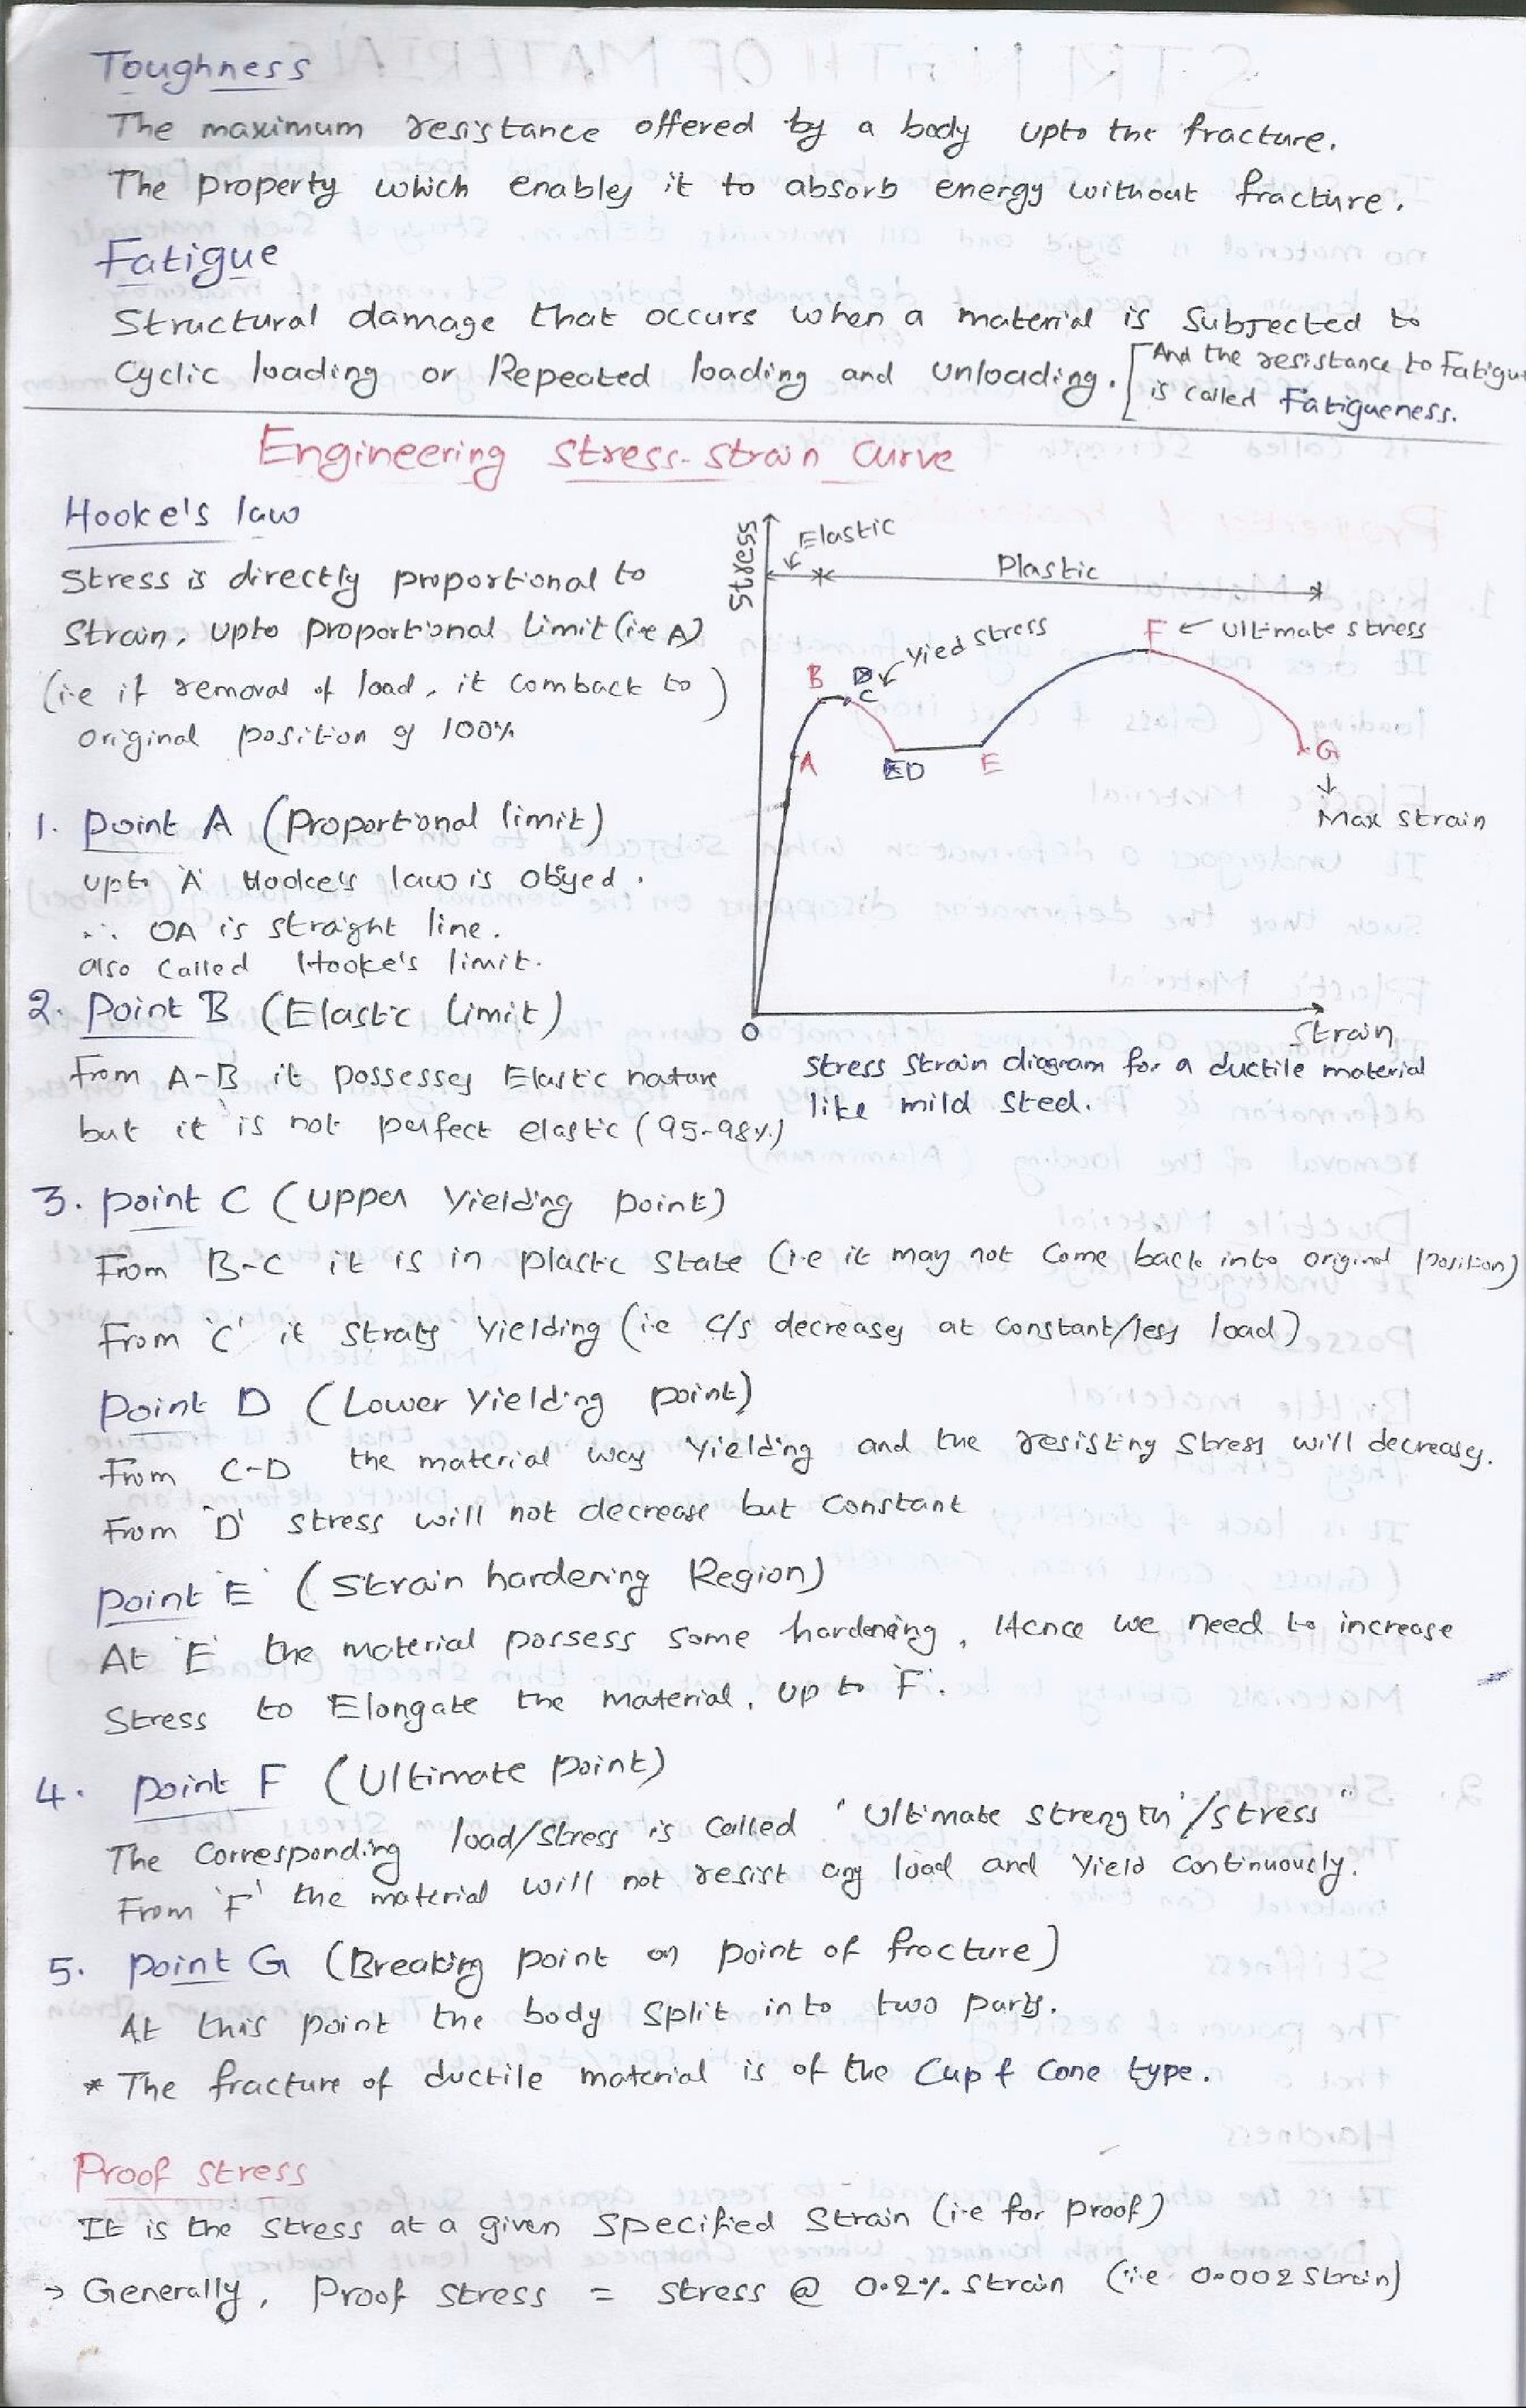 Toughness
The maximum resistance offered by a body upto the fracture.
The property which enables it to absorb energy without fracture.
Fatigue
Structural damage that occurs when a material is Subjected to
Cyclic loading or Repeated loading and unloading. [And the resistance to Fatigue
is called Fatigueness.
Engineering Stress-Strain Curve
Hooke's law
Stress is directly proportional to
Strain, upto proportional Limit (i.e A)
(i.e if removal of load, it comback to)
original position of 100%
1. Point A (Proportional limit)
upto 'A' Hooke's law is obyed.
∴ OA is straight line.
also called Hooke's limit.
2. Point B (Elastic limit)
From A-B it possesses Elastic nature
but it is not perfect elastic (95-98%)
Stress
Elastic
Plastic
F ← Ultimate stress
Yied stress
B
C
A
D
E
G
↓
Max strain
O
Strain
Stress Strain diagram for a ductile material
like mild steel.
3. Point C (Upper Yielding point)
From B-C it is in plastic state (i.e it may not come back into original position)
From 'C' it strats Yielding (i.e c/s decreases at constant/less load)
Point D (Lower Yielding point)
From C-D the material way Yielding and the resisting stress will decreases.
From 'D' stress will not decrease but constant
Point 'E' (Strain hardening Region)
At 'E' the material possess some hardening, Hence we need to increase
Stress to Elongate the material, up to 'F'.
4. Point F (Ultimate point)
The corresponding load/stress is called 'Ultimate strength'/stress"
From 'F' the material will not resist any load and yield continuously.
5. Point G (Breaking point or point of fracture)
At this point the body split into two parts.
* The fracture of ductile material is of the Cup & Cone type.
Proof stress
It is the stress at a given specified Strain (i.e for proof)
→ Generally, Proof stress = stress @ 0.2% Strain (i.e 0.002 Strain)